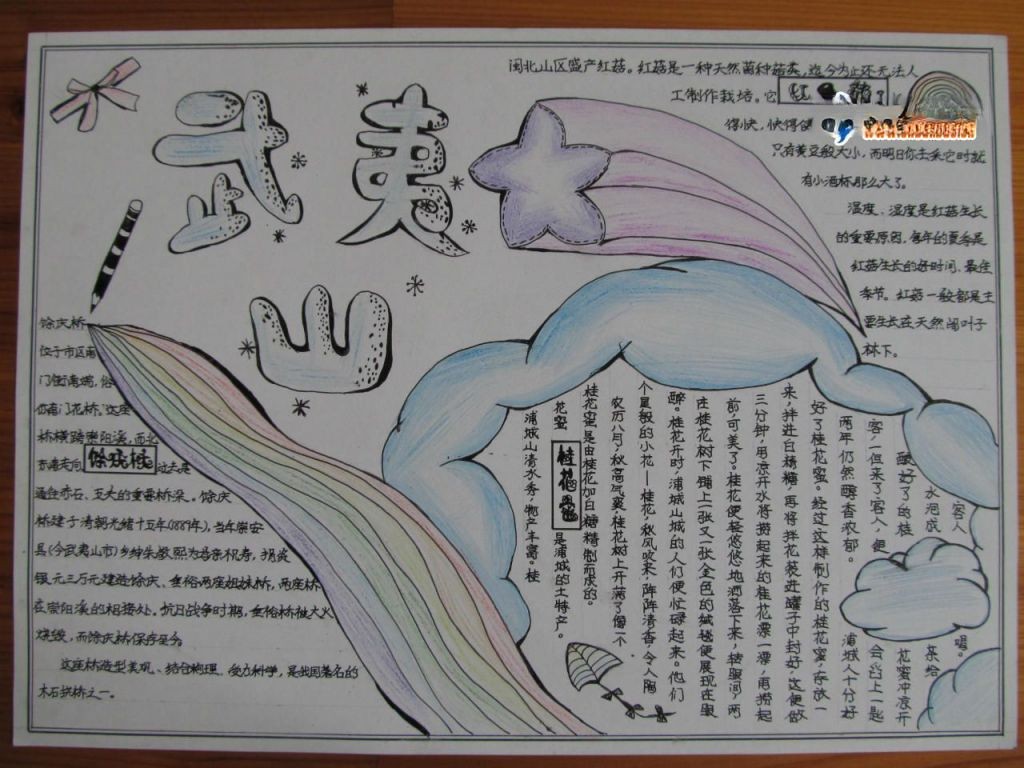 武夷
山
闽北山区盛产红菇。红菇是一种天然菌种菇类，迄今为止还无法人
工制作栽培。它
红 菇
得快，快得使
只有黄豆般大小，而明日你去采它时就
有小酒杯那么大了。
温度、湿度是红菇生长
的重要原因，每年的夏季是
红菇生长的好时间、最佳
季节。红菇一般都是主
要生长在天然阔叶子
林下。
馀庆桥
位于市区南
门街南端，俗
仿南门花桥，这座
桥横跨崇阳溪，西北
东南走向
馀庆桥
过去是
通往赤石、五夫的重要桥梁。馀庆
桥建于清朝光绪十五年(1887年)，当年崇安
县(今武夷山市)乡绅朱敬熙为母亲祝寿，捐资
银元三万元建造馀庆、垂裕两座姐妹桥，两座桥
在崇阳溪的相接处。抗日战争时期，垂裕桥被大火
烧毁，而馀庆桥保存至今。
这座桥造型美观、结合物理、受力科学，是我国著名的
木石拱桥之一。
桂花蜜
浦城山清水秀，物产丰富。桂
花蜜是浦城的土特产。
桂花蜜是由桂花加白糖精制而成的。
农历八月，秋高气爽，桂花树上开满了像一个
个星般的小花—桂花，秋风吹来，阵阵清香，令人陶
醉。桂花开时，浦城山城的人们便忙碌起来。他们
在桂花树下铺上一张又一张金色的绒毯便展现在眼
前，可美了。桂花便轻悠悠地洒落下来，转眼间，两
三分钟，用凉开水将捞起来的桂花漂一漂，再捞起
来，拌进白糖精，再将拌花装进罐子中封好，这便做
好了桂花蜜。经过这样制作的桂花蜜，存放一
两年仍然醇香浓郁。浦城人十分好
客，但来了客人，便会舀上一匙
酿好了的桂花蜜冲凉开
水泡成茶给
客人喝。